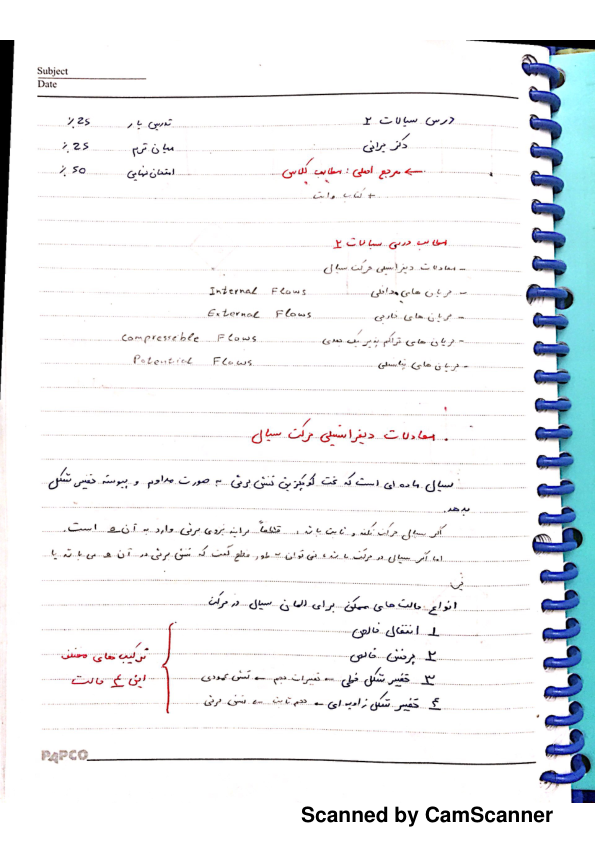 Subject
Date
درس سیالات ۲ تدریس یار 25 ٪
دکتر میان ترم 25 ٪
← مرجع اصلی : مطالب کلاس امتحان نهایی 50 ٪
+ کتاب وایت
مطالب درس سیالات ۲
- معادلات دیفرانسیلی حرکت سیال
- جریان های داخلی Internal Flows
- جریان های خارجی External Flows
- جریان های تراکم پذیر یک بعدی Compresseble Flows
- جریان های پتانسیلی Potential Flows
. معادلات دیفرانسیلی حرکت سیال
سیال ماده ای است که تحت کوچکترین تنش برشی به صورت مداوم و پیوسته تغییر شکل
میدهد.
اگر سیال حرکت نکند و ثابت باشد ، قطعاً برآیند نیروی برشی وارد به آن 0 است.
اما اگر سیال در حرکت باشد ، نمی توان به طور مطلق گفت که تنش برشی در آن 0 می باشد یا
خیر
انواع حالت های ممکن برای المان سیال در حرکت
۱ انتقال خالص
۲ چرخش خالص ترکیب های مختلف
۳ تغییر شکل خطی ← تغییرات حجم ← تنش عمودی این ۴ حالت
۴ تغییر شکل زاویه ای ← حجم ثابت ← تنش برشی
PAPCO
Scanned by CamScanner